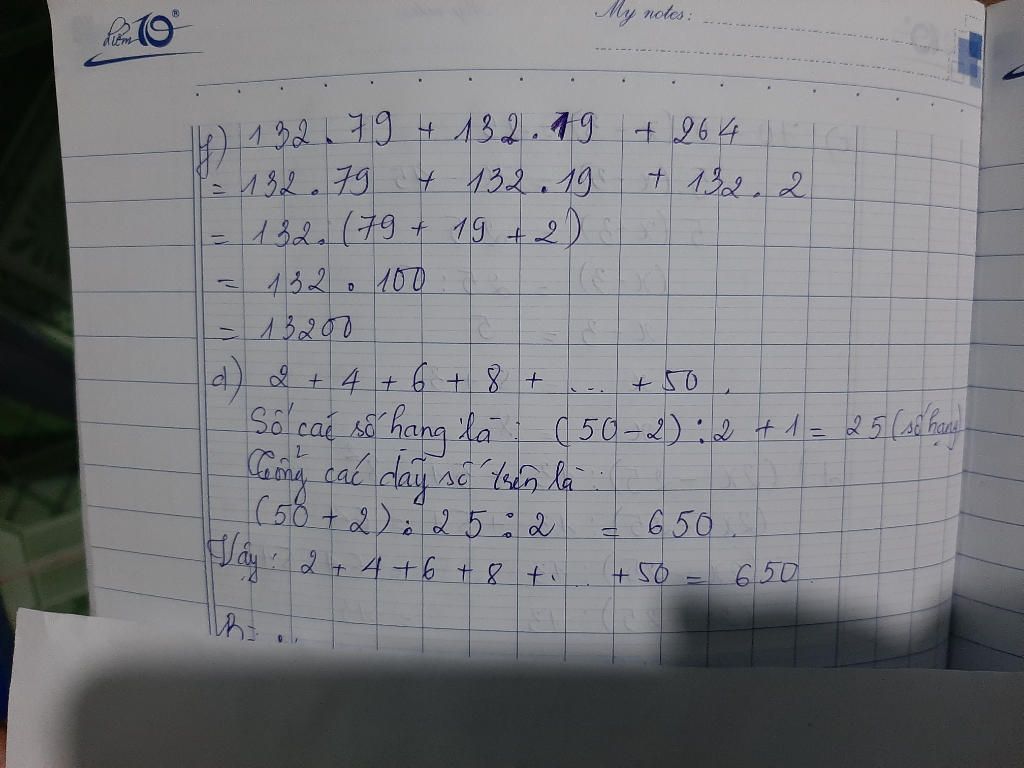 Điểm 10®
My notes:
f) 132 . 79 + 132 . 19 + 264
= 132 . 79 + 132 . 19 + 132 . 2
= 132. (79 + 19 + 2)
= 132 . 100
= 13200
d) 2 + 4 + 6 + 8 + ... + 50.
Số các số hạng là : (50 - 2) : 2 + 1 = 25 (số hạng)
các dãy số trên là :
(50 + 2) : 25 : 2 = 650.
Vậy : 2 + 4 + 6 + 8 + ... + 50 = 650.